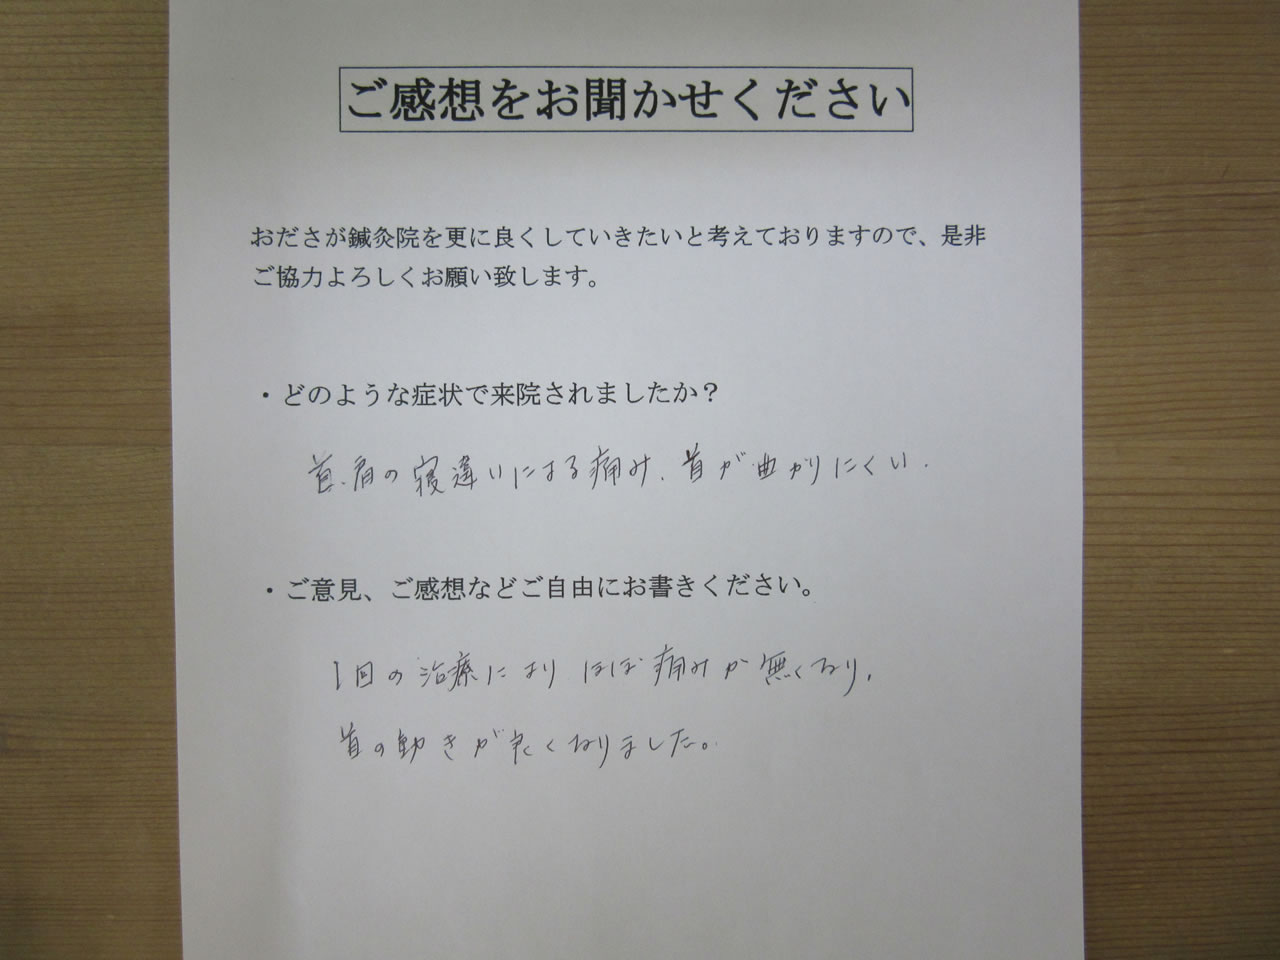 ご感想をお聞かせください
おださが鍼灸院を更に良くしていきたいと考えておりますので、是非
ご協力よろしくお願い致します。
・どのような症状で来院されましたか？
首、肩の寝違いによる痛み、首が曲がりにくい.
・ご意見、ご感想などご自由にお書きください。
1回の治療によりほぼ痛みが無くなり、
首の動きが良くなりました。